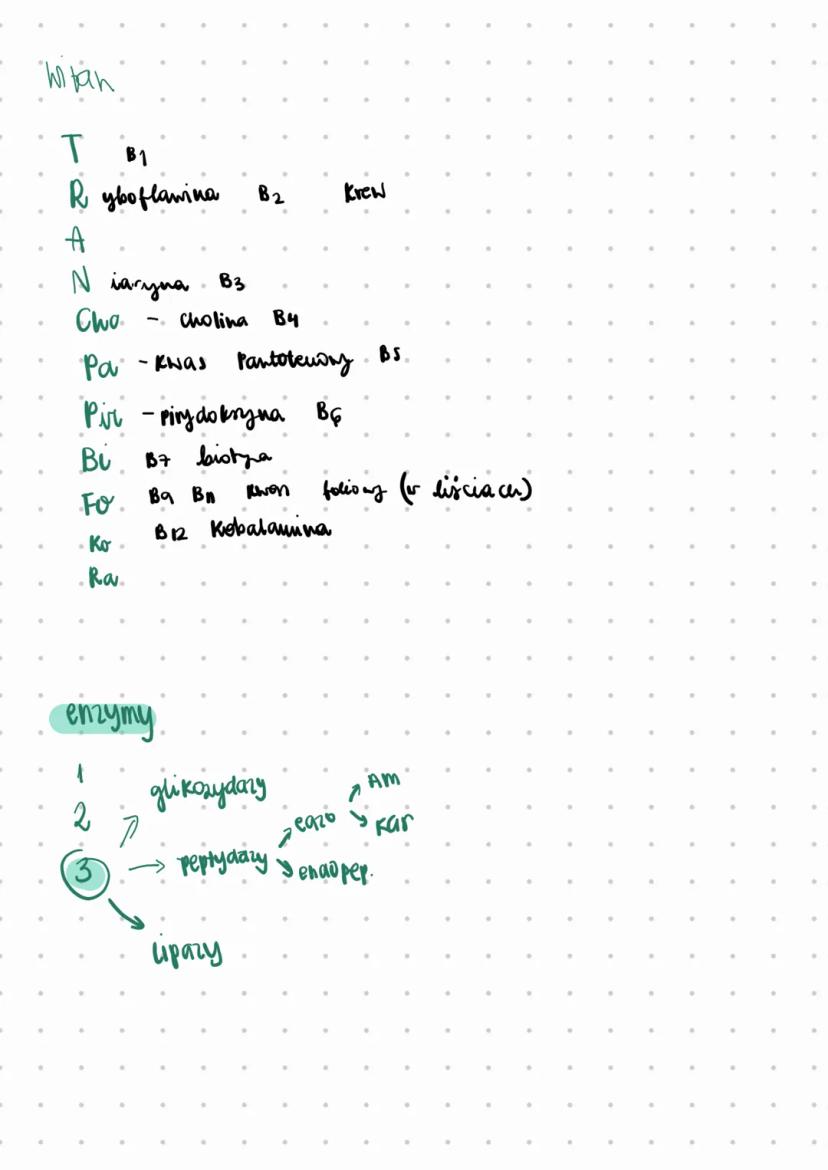 Witam
T B1
Ryboflawina B2 Krew
A
Niacyna B3
Cho - cholina B4
Pa - Kwas Pantotenowy B5
Pir - pirydoksyna B6
Bi B7 biotyna
Fo B9 B11 kwas foliowy (w liściach)
Ko B12 Kobalamina
Ra
enzymy
1
2
3
glikozydazy
peptydazy
egzo
AM
Kar
endopep.
lipazy